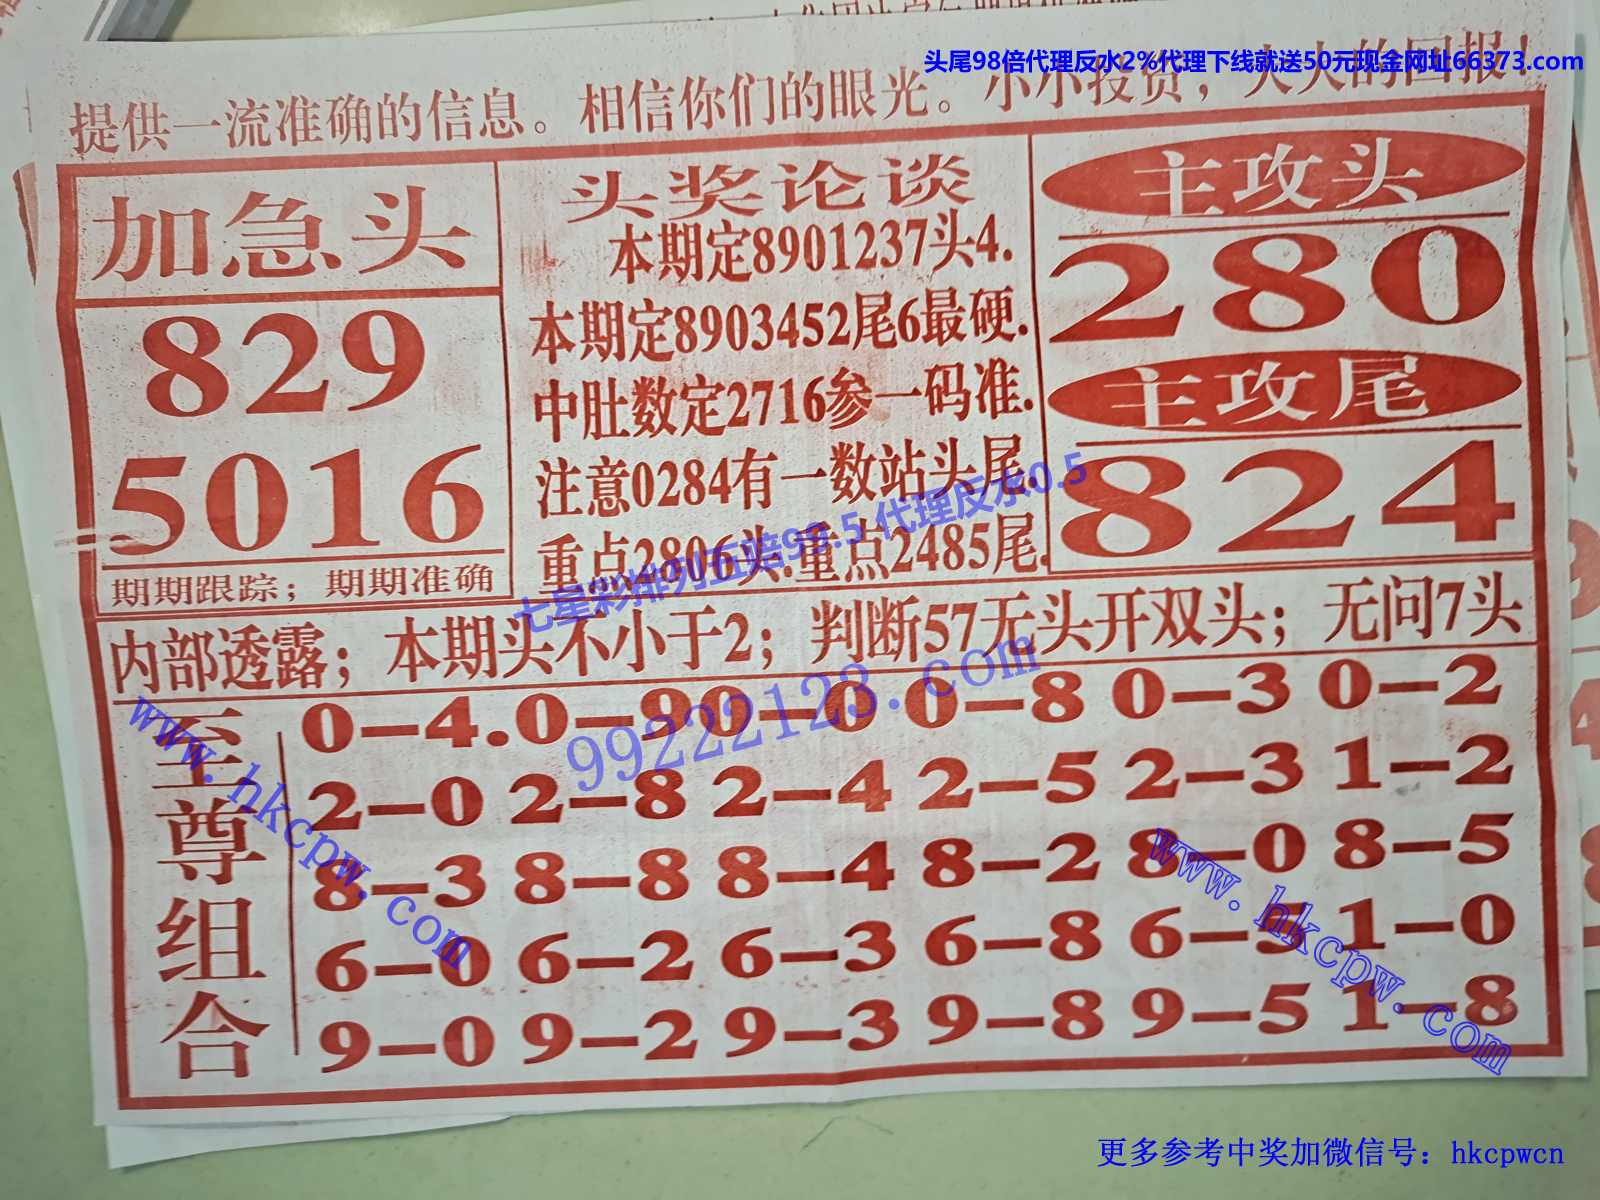 头尾98倍代理反水2%代理下线就送50元现金网址66373.com
提供一流准确的信息。相信你们的眼光。小小投资，大大的回报！
加急头
829
5016
期期跟踪；期期准确
头奖论谈
本期定8901237头4.
本期定8903452尾6最硬.
中肚数定2716参一码准.
注意0284有一数站头尾.
重点2806头.重点2485尾.
主攻头
280
主攻尾
824
七星彩排列五赔98.5 代理反水0.5
内部透露；本期头不小于2；判断57无头开双头；无问7头
99222123.com
至尊组合
0–4.0–9 0–0 0–8 0–3 0–2
2–0 2–8 2–4 2–5 2–3 1–2
8–3 8–8 8–4 8–2 8–0 8–5
6–0 6–2 6–3 6–8 6–5 1–0
9–0 9–2 9–3 9–8 9–5 1–8
www.hkcpw.com
www.hkcpw.com
更多参考中奖加微信号：hkcpwcn